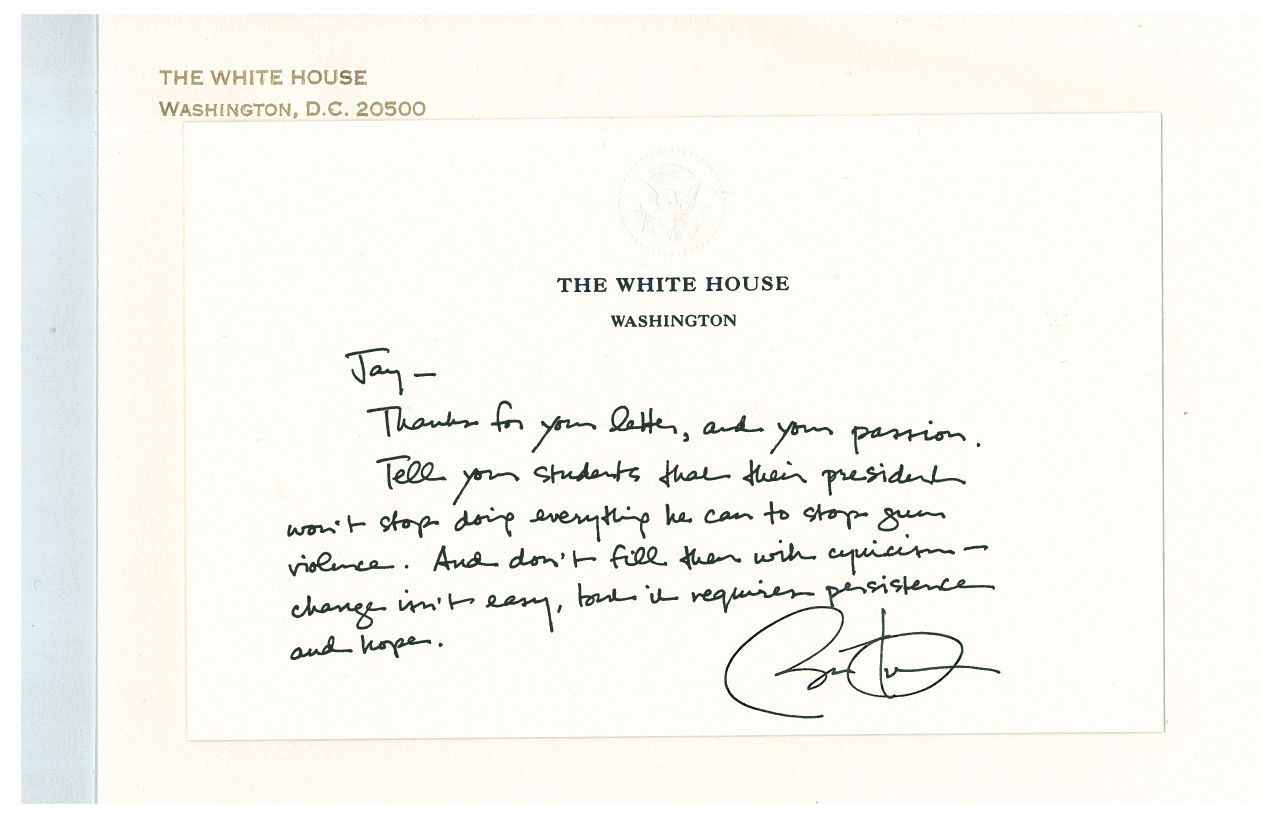 THE WHITE HOUSE
WASHINGTON, D.C. 20500
THE WHITE HOUSE
WASHINGTON
Jay —
Thanks for your letter, and your passion.
Tell your students that their president
won't stop doing everything he can to stop gun
violence. And don't fill them with cynicism —
change isn't easy, it requires persistence
and hope.